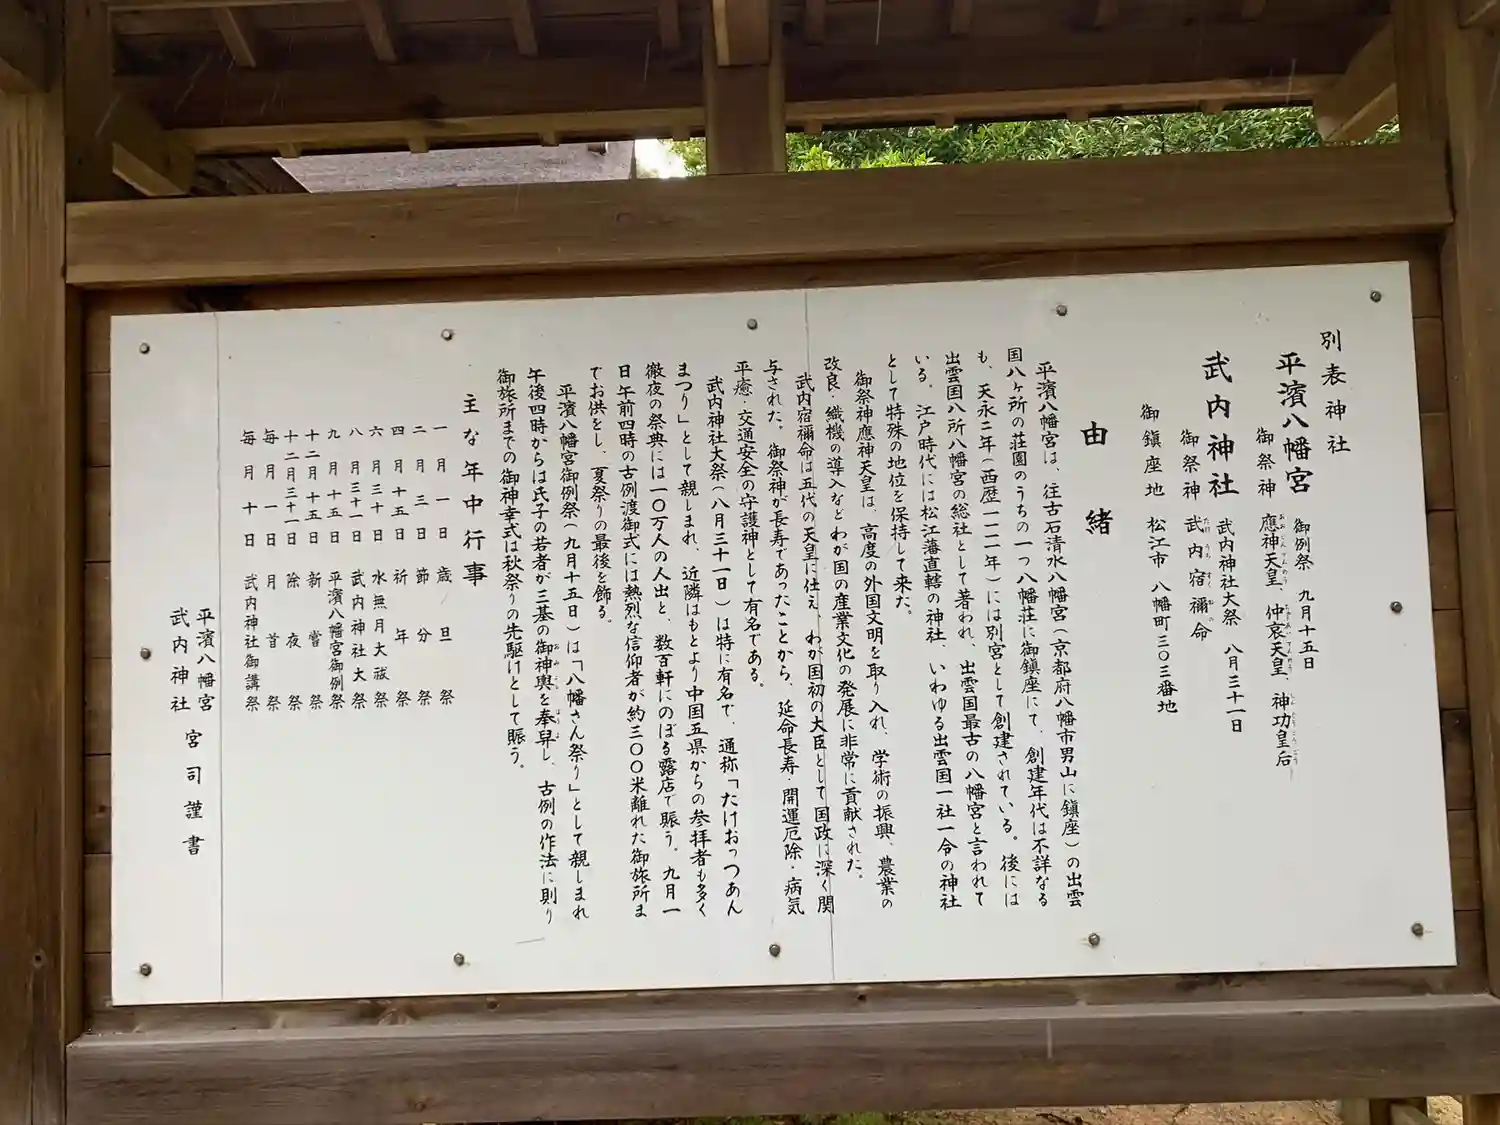 別表神社
平濱八幡宮 御例祭 九月十五日
御祭神 應神天皇、仲哀天皇、神功皇后
武内神社 武内神社大祭 八月三十一日
御祭神 武内宿禰命
御鎮座地 松江市八幡町三〇三番地
由緒
平濱八幡宮は、往古石清水八幡宮(京都府八幡市男山に鎮座)の出雲
国八ヶ所の荘園のうちの一つ八幡荘に御鎮座にて、創建年代は不詳なる
も、天永二年(西歴一一一年)には別宮として創建されている。後には
出雲国八所八幡宮の総社として著われ、出雲国最古の八幡宮と言われて
いる。江戸時代には松江藩直轄の神社、いわゆる出雲国一社一令の神社
として特殊の地位を保持して来た。
御祭神應神天皇は、高度の外国文明を取り入れ、学術の振興、農業の
改良・織機の導入などわが国の産業文化の発展に非常に貢献された。
武内宿禰命は五代の天皇に仕え、わが国初の大臣として国政に深く関
与された。御祭神が長寿であったことから、延命長寿・開運厄除・病気
平癒・交通安全の守護神として有名である。
武内神社大祭(八月三十一日)は特に有名で、通称「たけおっつあん
まつり」として親しまれ、近隣はもとより中国五県からの参拝者も多く
徹夜の祭典には一〇万人の人出と、数百軒にのぼる露店で賑う。九月一
日午前四時の古例渡御式には熱烈な信仰者が約三〇〇米離れた御旅所ま
でお供をし、夏祭りの最後を飾る。
平濱八幡宮御例祭(九月十五日)は「八幡さん祭り」として親しまれ
午後四時からは氏子の若者が三基の御神輿を奉舁し、古例の作法に則り
御旅所までの御神幸式は秋祭りの先駆けとして賑う。
主な年中行事
一月一日 歳旦祭
二月三日 節分祭
四月十五日 祈年祭
六月三十日 水無月大祓
八月三十一日 武内神社大祭
九月十五日 平濱八幡宮御例祭
十二月十五日 新嘗祭
十二月三十一日 除夜祭
毎月一日 月首祭
毎月十日 武内神社御講祭
平濱八幡宮
武内神社 宮司謹書